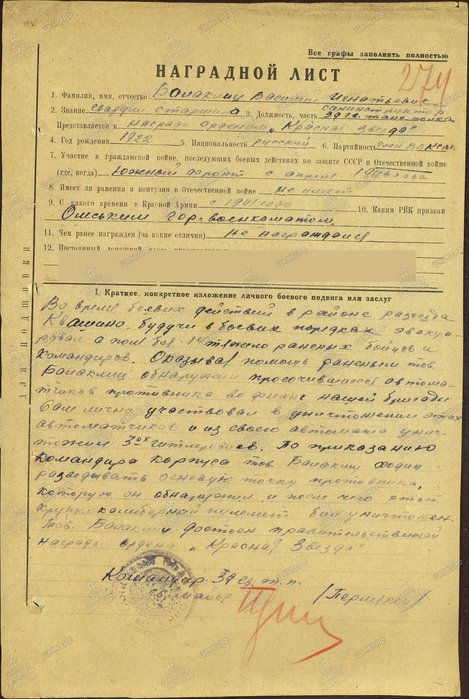 Все графы заполнять полностью
274
НАГРАДНОЙ ЛИСТ
1. Фамилия, имя, отчество Балаклиц Василий Игнатьевич
2. Звание гвардии старшина 3. Должность, часть санинструктор
Представляется к награде орденом „Красная Звезда"
4. Год рождения 1922 5. Национальность русский 6. Партийность член ВЛКСМ
7. Участие в гражданской войне, последующих боевых действиях по защите СССР и Отечественной войне
(где, когда) Южный фронт с апреля
8. Имеет ли ранения и контузии в Отечественной войне не имеет
9. С какого времени в Красной Армии с 1941 года 10. Каким РВК призван
Омским гор. военкоматом
11. Чем ранее награжден (за какие отличия) Не награждался
12. Постоянный
ДЛЯ ПОДШИВКИ
I. Краткое, конкретное изложение личного боевого подвига или заслуг
Во время боевых действий в районе разъезда
будучи в боевых порядках эвакуи-
ровал с поля боя 14 раненых бойцов и
командиров. Оказывая помощь раненым тов.
обнаружил просочившихся автомат-
чиков противника во фланг нашей бригады
Сам лично участвовал в уничтожении этих
автоматчиков и из своего автомата унич-
тожил 3-ох гитлеровцев. По приказанию
командира корпуса тов. ходил
разведывать огневую точку противника,
которую он обнаружил и после чего этот
крупнокалиберный пулемет был уничтожен.
Тов. достоин правительственной
награды ордена „Красная Звезда"
Командир
майор